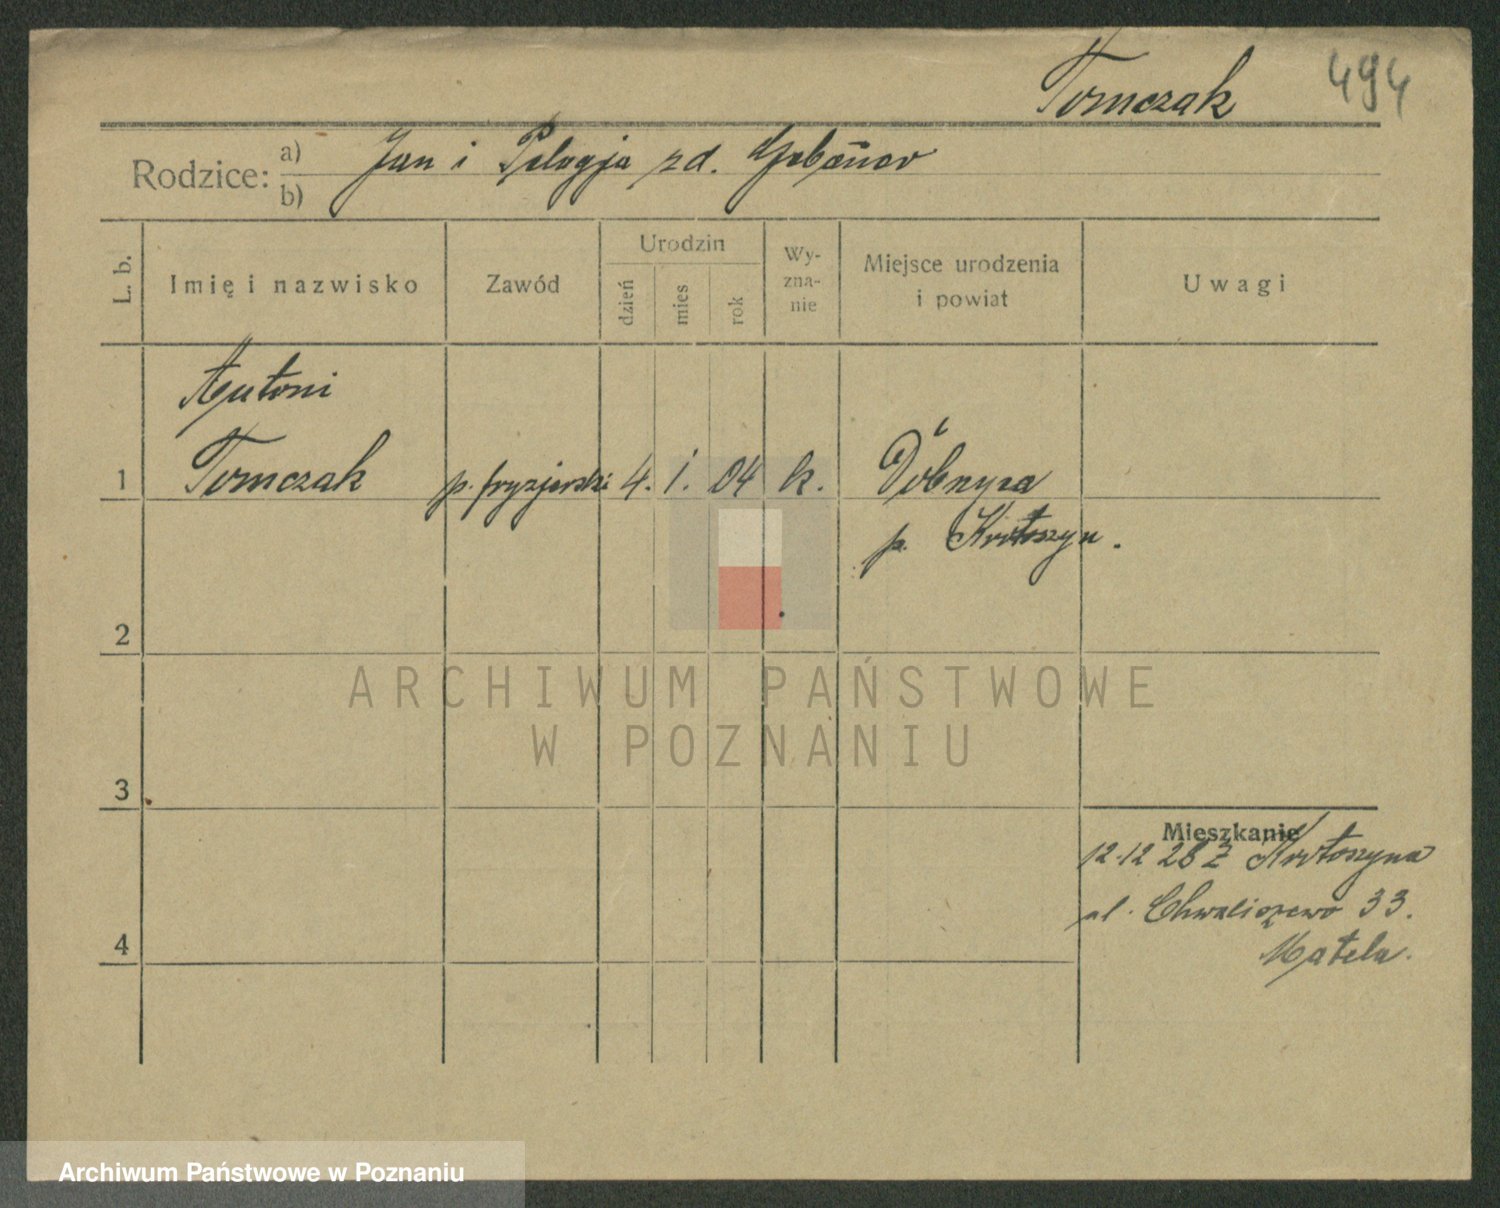 Tomczak 494
Rodzice: a) b) Jan i Pelagja zd.
L. b.
Imię i nazwisko
Zawód
Urodzin
dzień
mies
rok
Wy-
zna-
nie
Miejsce urodzenia
i powiat
Uwagi
Antoni
1 Tomczak p. fryzjerski 4. 1. 04 k.
p. Krotoszyn.
2
3
4
Mieszkanie
12.12 28 Z Krotoszyna
ul. Chwaliszewo 33.
Matela.
ARCHIWUM PAŃSTWOWE
W POZNANIU
Archiwum Państwowe w Poznaniu